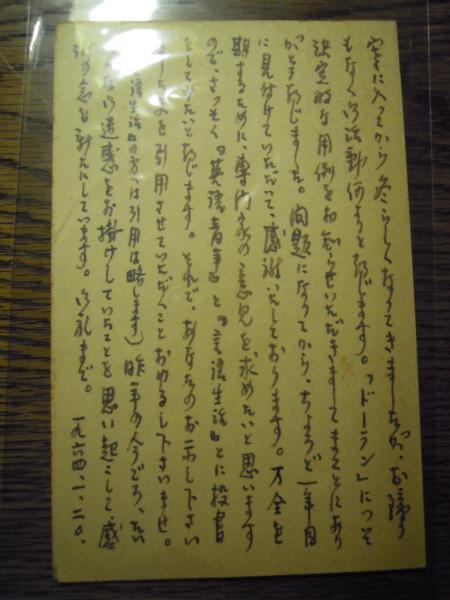 寒に入ってから冬らしくなってきましたが、お障り
もなく御活動何よりと存じます。「ドーラン」について
決定的な用例をお知らせいただきましてまことにあり
がとう存じました。問題になりてから、ちょうど一年目
に見付けていただいて、感謝いたしております。万全を
期するために、専門家の意見を求めたいと思います
ので、さっそく『英語青年』と『言語生活』とに投書
をしてみたいと存じます。それで、あなたのお示し下さい
ましたのを引用させていただくことおゆるし下さいませ。
語生活』の方へは引用は略します）昨年の今ごろ、たい
んな御迷惑をお掛けしていたことを思い起こして、感
謝の念を新たにしています。御礼まで。
一九六四、一、二〇、